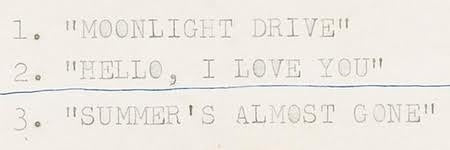 1. "MOONLIGHT DRIVE"
2. "HELLO, I LOVE YOU"
3. "SUMMER'S ALMOST GONE"